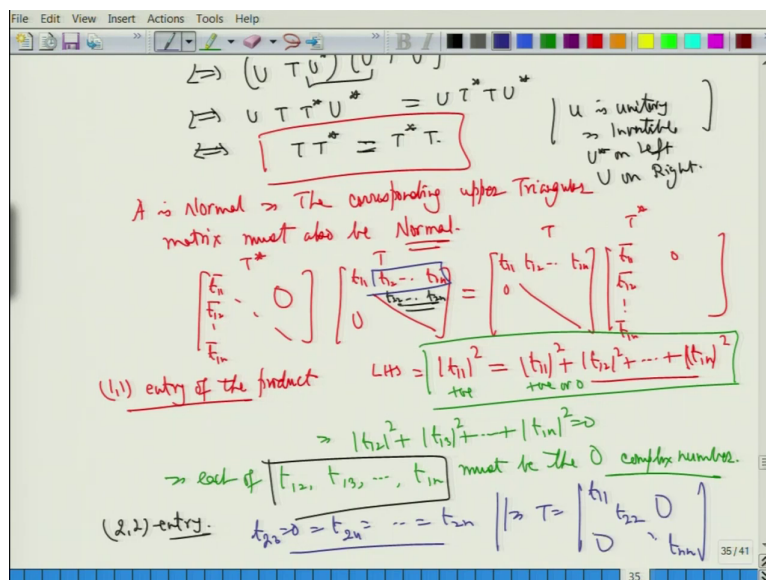 File Edit View Insert Actions Tools Help
⟺ (U T U*) (U
⟺ U T T* U* = U T* T U*
⟺ T T* = T* T.
U is unitary
⇒ Invertible
U* on Left
U on Right.
A is Normal ⇒ The corresponding upper Triangular
matrix must also be Normal.
T* T = T T*
[t̄11 0; t̄12; ⋮; t̄1n] [t11 t12 ... t1n; t22 ... t2n; 0] = [t11 t12 ... t1n; 0] [t̄11 0; t̄12; ⋮; t̄1n]
(1,1) entry of the product LHS = |t11|² = |t11|² + |t12|² + ... + |t1n|²
+ve +ve or 0
⇒ |t12|² + |t13|² + ... + |t1n|² = 0
⇒ each of t12, t13, ..., t1n must be the 0 complex number.
(2,2) entry. t23 = 0 = t24 = ... = t2n ⇒ T = [t11 0; t22; 0 ⋱ tnn]
35/41
35